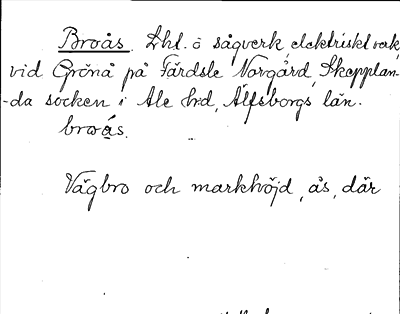 Broås. Lht. o sågverk, elektriskt verk,
vid Grönå på Färdsle Norgård, Skepplan-
-da socken i Ale hd, Älfsborgs län.
broås.
Vägbro och markhöjd, ås, där